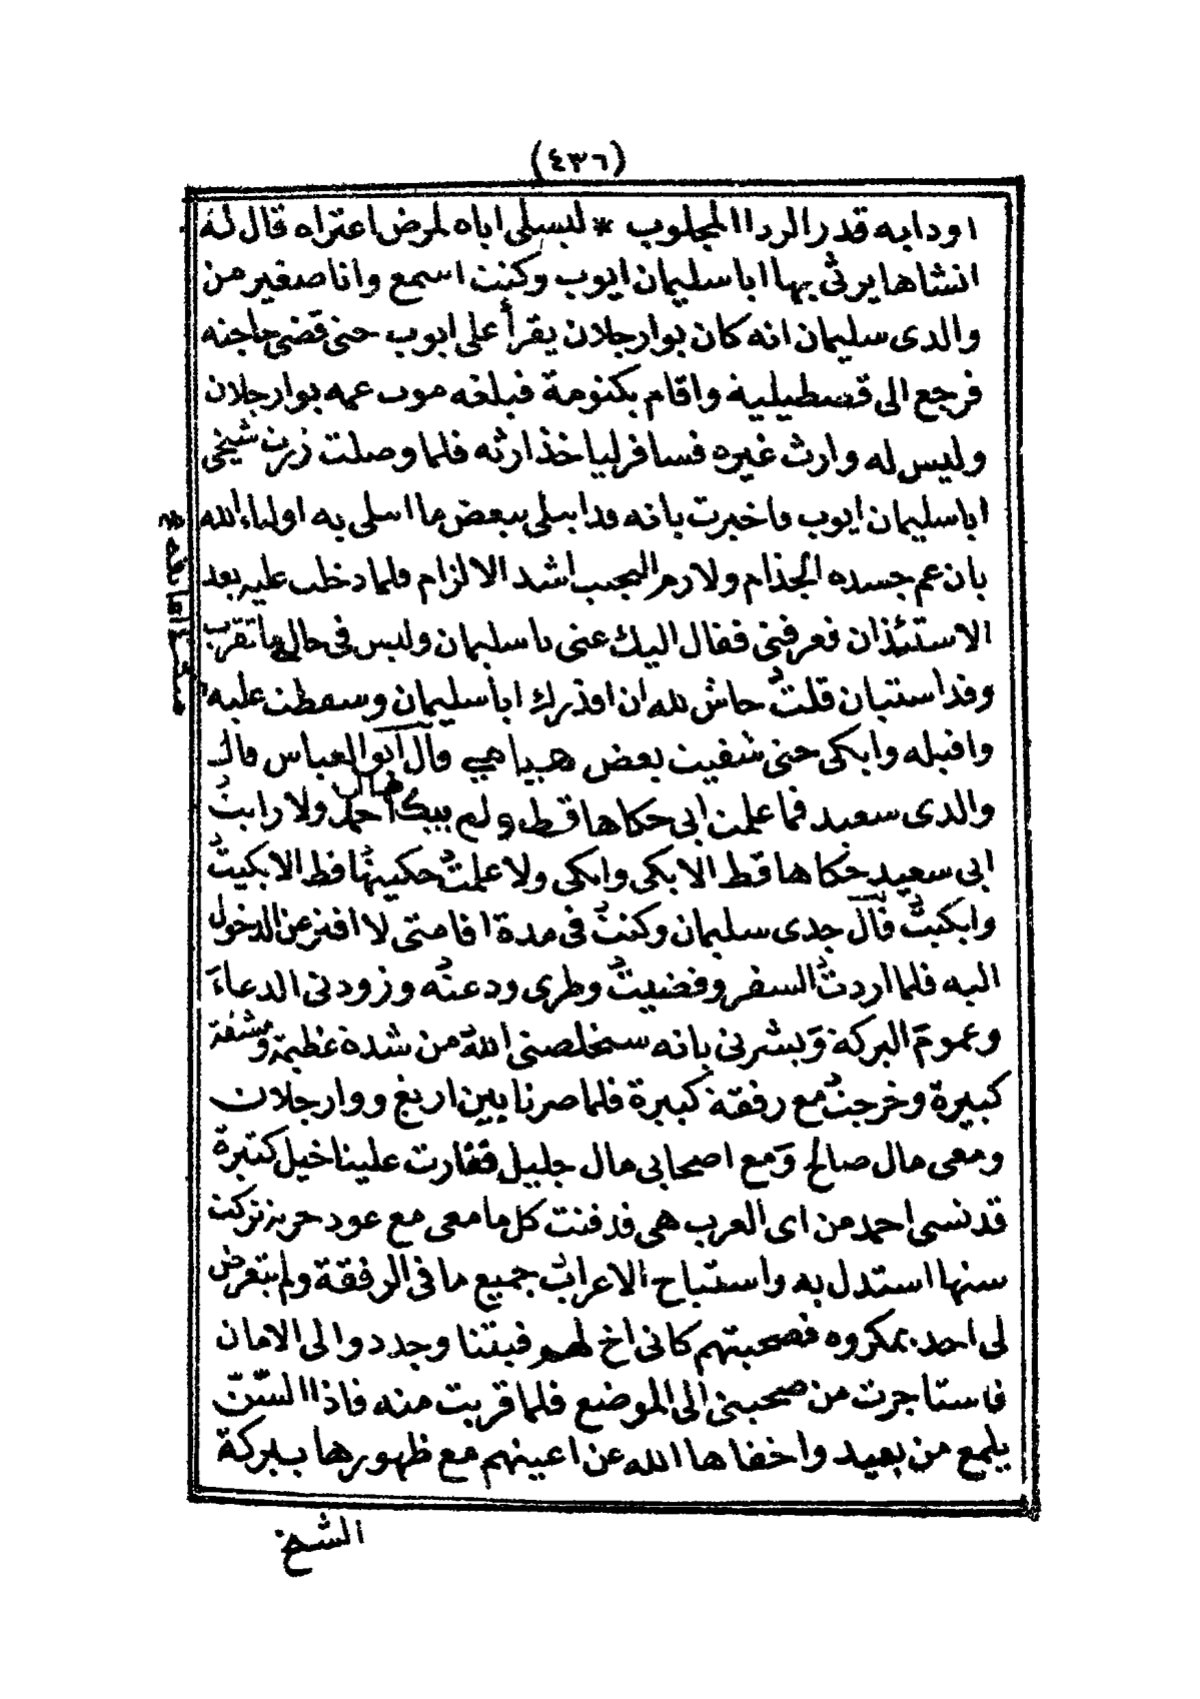 (٤٣٦)
اودابه قدر الردا المجلوب * ليسلي اباه لمرض اعتراه قال له
انشاها يرثي بها ابا سليمان ايوب وكنت اسمع وانا صغير من
والدي سليمان انه كان بوارجلان يقرأ على ايوب حتى قضى حاجته
فرجع الى قصطيلية واقام بكنومة فبلغه موت عمه بوارجلان
وليس له وارث غيره فسافر ليأخذ ارثه فلما وصلت زرت شيخي
اباسليمان ايوب فاخبرت بانه قد ابتلي ببعض ما ابتلي به اولياء الله
بان عم جسده الجذام ولازمه اشد الالزام فلما دخلت عليه بعد
الاستئذان فعرفني فقال اليك عني يا سليمان وليس في حال ما تقرب
وقد استبان قلت حاش لله ان اقذرك اباسليمان وسقطت عليه
واقبله وابكي حتى شفيت بعض هيامي قال ابو العباس قال
والدي سعيد فما علمت ابي حكاها قط ولم يبك قال احمد ولا رايت
ابي سعيد حكاها قط الا بكى وابكى ولا علمت حكيتها قط الا بكيت
وابكيت قال جدي سليمان وكنت في مدة اقامتي لا افتر عن الدخول
اليه فلما اردت السفر وقضيت وطري ودعته وزودني الدعاء
وعموم البركة وبشرني بانه سيخلصني الله من شدة عظيمة ومشقة
كبيرة وخرجت مع رفقة كبيرة فلما صرنا بين اريغ ووارجلان
ومعي مال صالح ومع اصحابي مال جليل فغارت علينا خيل كثيرة
قد نسي احمد من اي العرب هي فدفنت كل ما معي مع عود حربة تركت
منها استدل به واستباح الاعراب جميع ما في الرفقة ولم يتعرض
لي احد بمكروه فصحبتهم كاني اخ لهم فبتنا وجددوا لي الامان
فاستاجرت من صحبني الى الموضع فلما قربت منه فاذا السنّ
يلمع من بعيد واخفاها الله عن اعينهم مع ظهورها ببركة
الشيخ